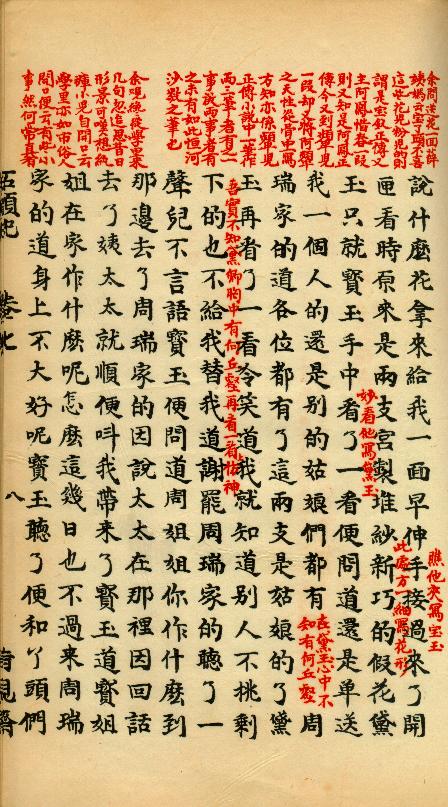 余問送花一回薛
姨媽云宝丫頭不喜
這些花兒粉兒的則
謂是宝釵正傳又
主阿鳳惜春一段
則又知是阿鳳正
傳今又到顰兒
一段却又將阿顰
之天性從骨中一寫
方知亦係顰兒
正傳小說中一筆作
兩三筆者有之一
事啟兩事者有
之未有如此恒河
沙數之筆也
余覌纔從學里來
几句忽追思昔日
形景可嘆想紈
褲小兒自開口云
學里亦如市俗人
開口便云有些小
事然何常真有
說什麽花拿來給我一面早伸手接過來了開
瞧他夾寫宝玉
匣看時原來是兩支宮製堆紗新巧的假花黛
此處方一細寫花形
玉只就寶玉手中看了一看便問道還是單送
妙看他寫黛玉
我一個人的還是别的姑娘們都有
在黛玉心中不
知有何丘壑
周
瑞家的道各位都有了這兩支是姑娘的了黛
玉再看了一看冷笑道我就知道别人不挑剩
吾實不知黛卿胸中有何丘壑再看一看傳神
下的也不給我替我道謝罷周瑞家的聽了一
聲兒不言語寶玉便問道周姐姐你作什麽到
那邊去了周瑞家的因說太太在那裡因回話
去了姨太太就順便呌我帶來了寶玉道寶姐
姐在家作什麽呢怎麽這幾日也不過來周瑞
家的道身上不大好呢寶玉聽了便和丫頭們
石頭記 卷七 八 脂硯齋